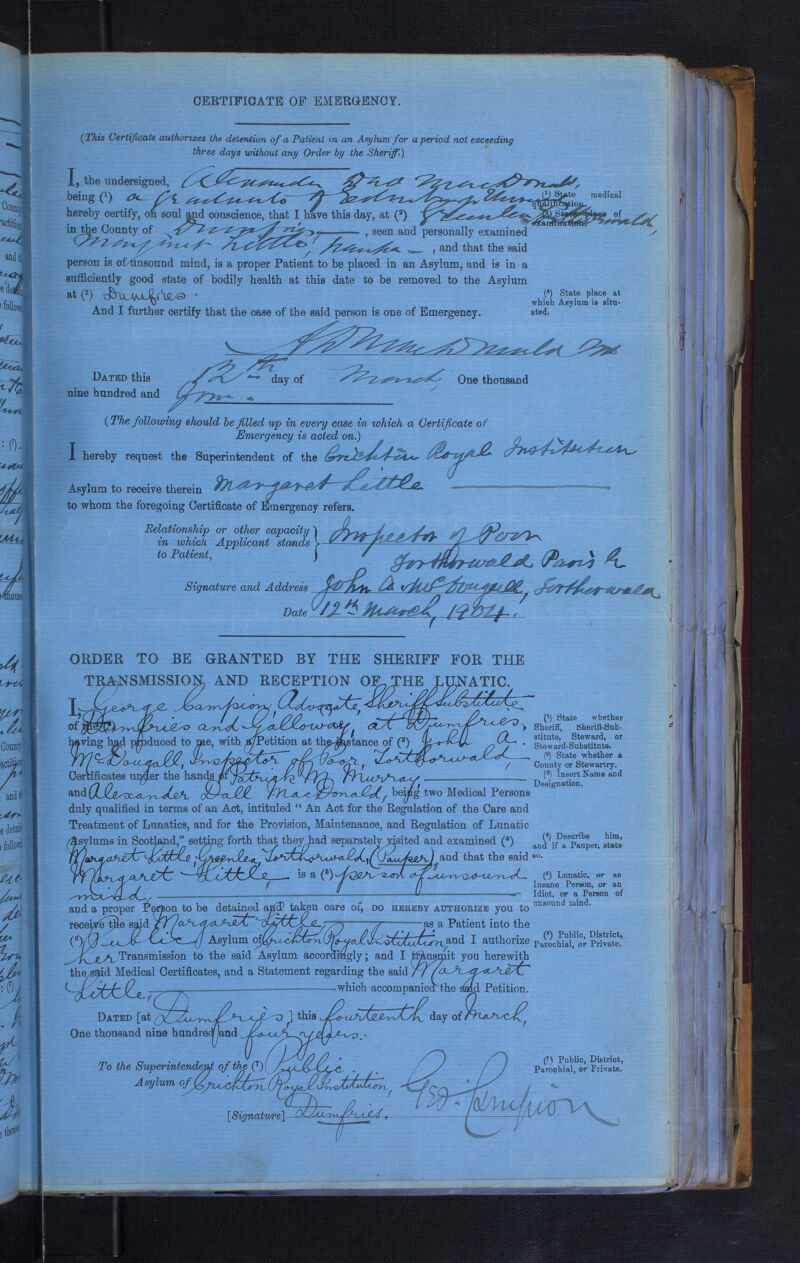 CERTIFICATE OF EMERGENCY.
(This Certificate authorizes the detention of a Patient in an Asylum for a period not exceeding
three days without any Order by the Sheriff.)
I, the undersigned, Alexander Dall MacDonald,
being (¹) a Graduate of Edinburgh
(¹) State medical
qualification.
hereby certify, on soul and conscience, that I have this day, at (²) Greenlea, Torthorwald,
(²) State place of
examination.
in the County of Dumfries , seen and personally examined
Margaret Little, Pauper , and that the said
person is of unsound mind, is a proper Patient to be placed in an Asylum, and is in a
sufficiently good state of bodily health at this date to be removed to the Asylum
at (³) Dumfries .
(³) State place at
which Asylum is situ-
ated.
And I further certify that the case of the said person is one of Emergency.
A D MacDonald
DATED this 12th day of March, One thousand
nine hundred and four.
(The following should be filled up in every case in which a Certificate of
Emergency is acted on.)
I hereby request the Superintendent of the Crichton Royal Institution
Asylum to receive therein Margaret Little
to whom the foregoing Certificate of Emergency refers.
Relationship or other capacity
in which Applicant stands
to Patient,
Inspector of Poor
Torthorwald Parish
Signature and Address John A McDougall, Torthorwald
Date 12th March, 1904.
ORDER TO BE GRANTED BY THE SHERIFF FOR THE
TRANSMISSION AND RECEPTION OF THE LUNATIC.
I, George Campion, Advocate, Sheriff Substitute
of Dumfries and Galloway, at Dumfries,
(¹) State whether
Sheriff, Sheriff-Sub-
stitute, Steward, or
Steward-Substitute.
having had produced to me, with a Petition at the instance of (³) John A.
McDougall, Inspector of Poor, Torthorwald
(²) State whether a
County or Stewartry.
Certificates under the hands of Patrick M. Murray,
(³) Insert Name and
Designation.
and Alexander Dall MacDonald, being two Medical Persons
duly qualified in terms of an Act, intituled " An Act for the Regulation of the Care and
Treatment of Lunatics, and for the Provision, Maintenance, and Regulation of Lunatic
Asylums in Scotland," setting forth that they had separately visited and examined (⁴)
(⁴) Describe him,
and if a Pauper, state
so.
Margaret Little, Greenlea, Torthorwald, (Pauper) and that the said
Margaret Little is a (⁵) person of unsound
mind,
(⁵) Lunatic, or an
Insane Person, or an
Idiot, or a Person of
unsound mind.
and a proper Person to be detained and taken care of, DO HEREBY AUTHORIZE you to
receive the said Margaret Little as a Patient into the
(⁶) Public Asylum of Crichton Royal Institution, and I authorize
(⁶) Public, District,
Parochial, or Private.
her Transmission to the said Asylum accordingly; and I transmit you herewith
the said Medical Certificates, and a Statement regarding the said Margaret
Little, which accompanied the said Petition.
DATED [at Dumfries ] this fourteenth day of March,
One thousand nine hundred and four years.
To the Superintendent of the (⁷) Public
(⁷) Public, District,
Parochial, or Private.
Asylum of Crichton Royal Institution,
Dumfries.
[Signature] Geo. Campion